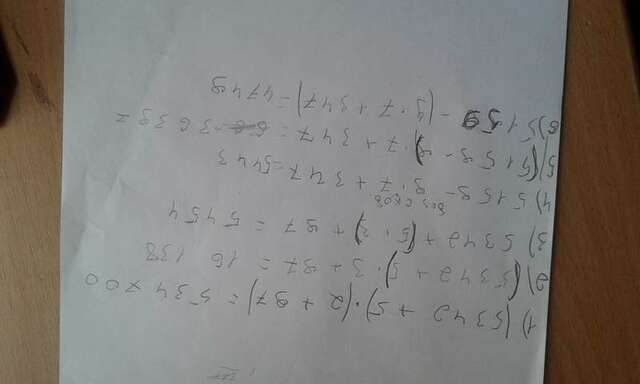 1) (5342 + 5)·(2 + 97) = 534 700
2) (5342 + 5)·3 + 97 = 16 138
3) 5342 + (5·3) + 97 = 5454
4) 5159 - 9·7 + 347 = 5443
5) (5159 - 9)·7 + 347 = 36397
6) 5159 - (9·7 + 347) = 4749